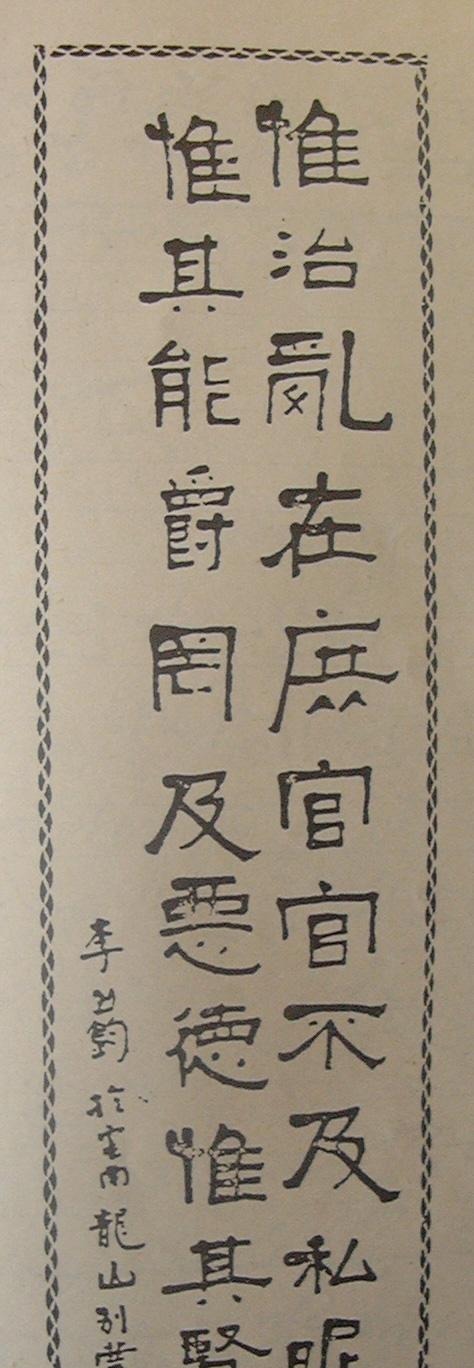 惟治亂在庶官官不及私昵
惟其能爵罔及惡德惟其賢
李 於 龍山別